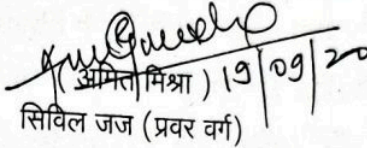 (अमित मिश्रा) 19/09/20
सिविल जज (प्रवर वर्ग)